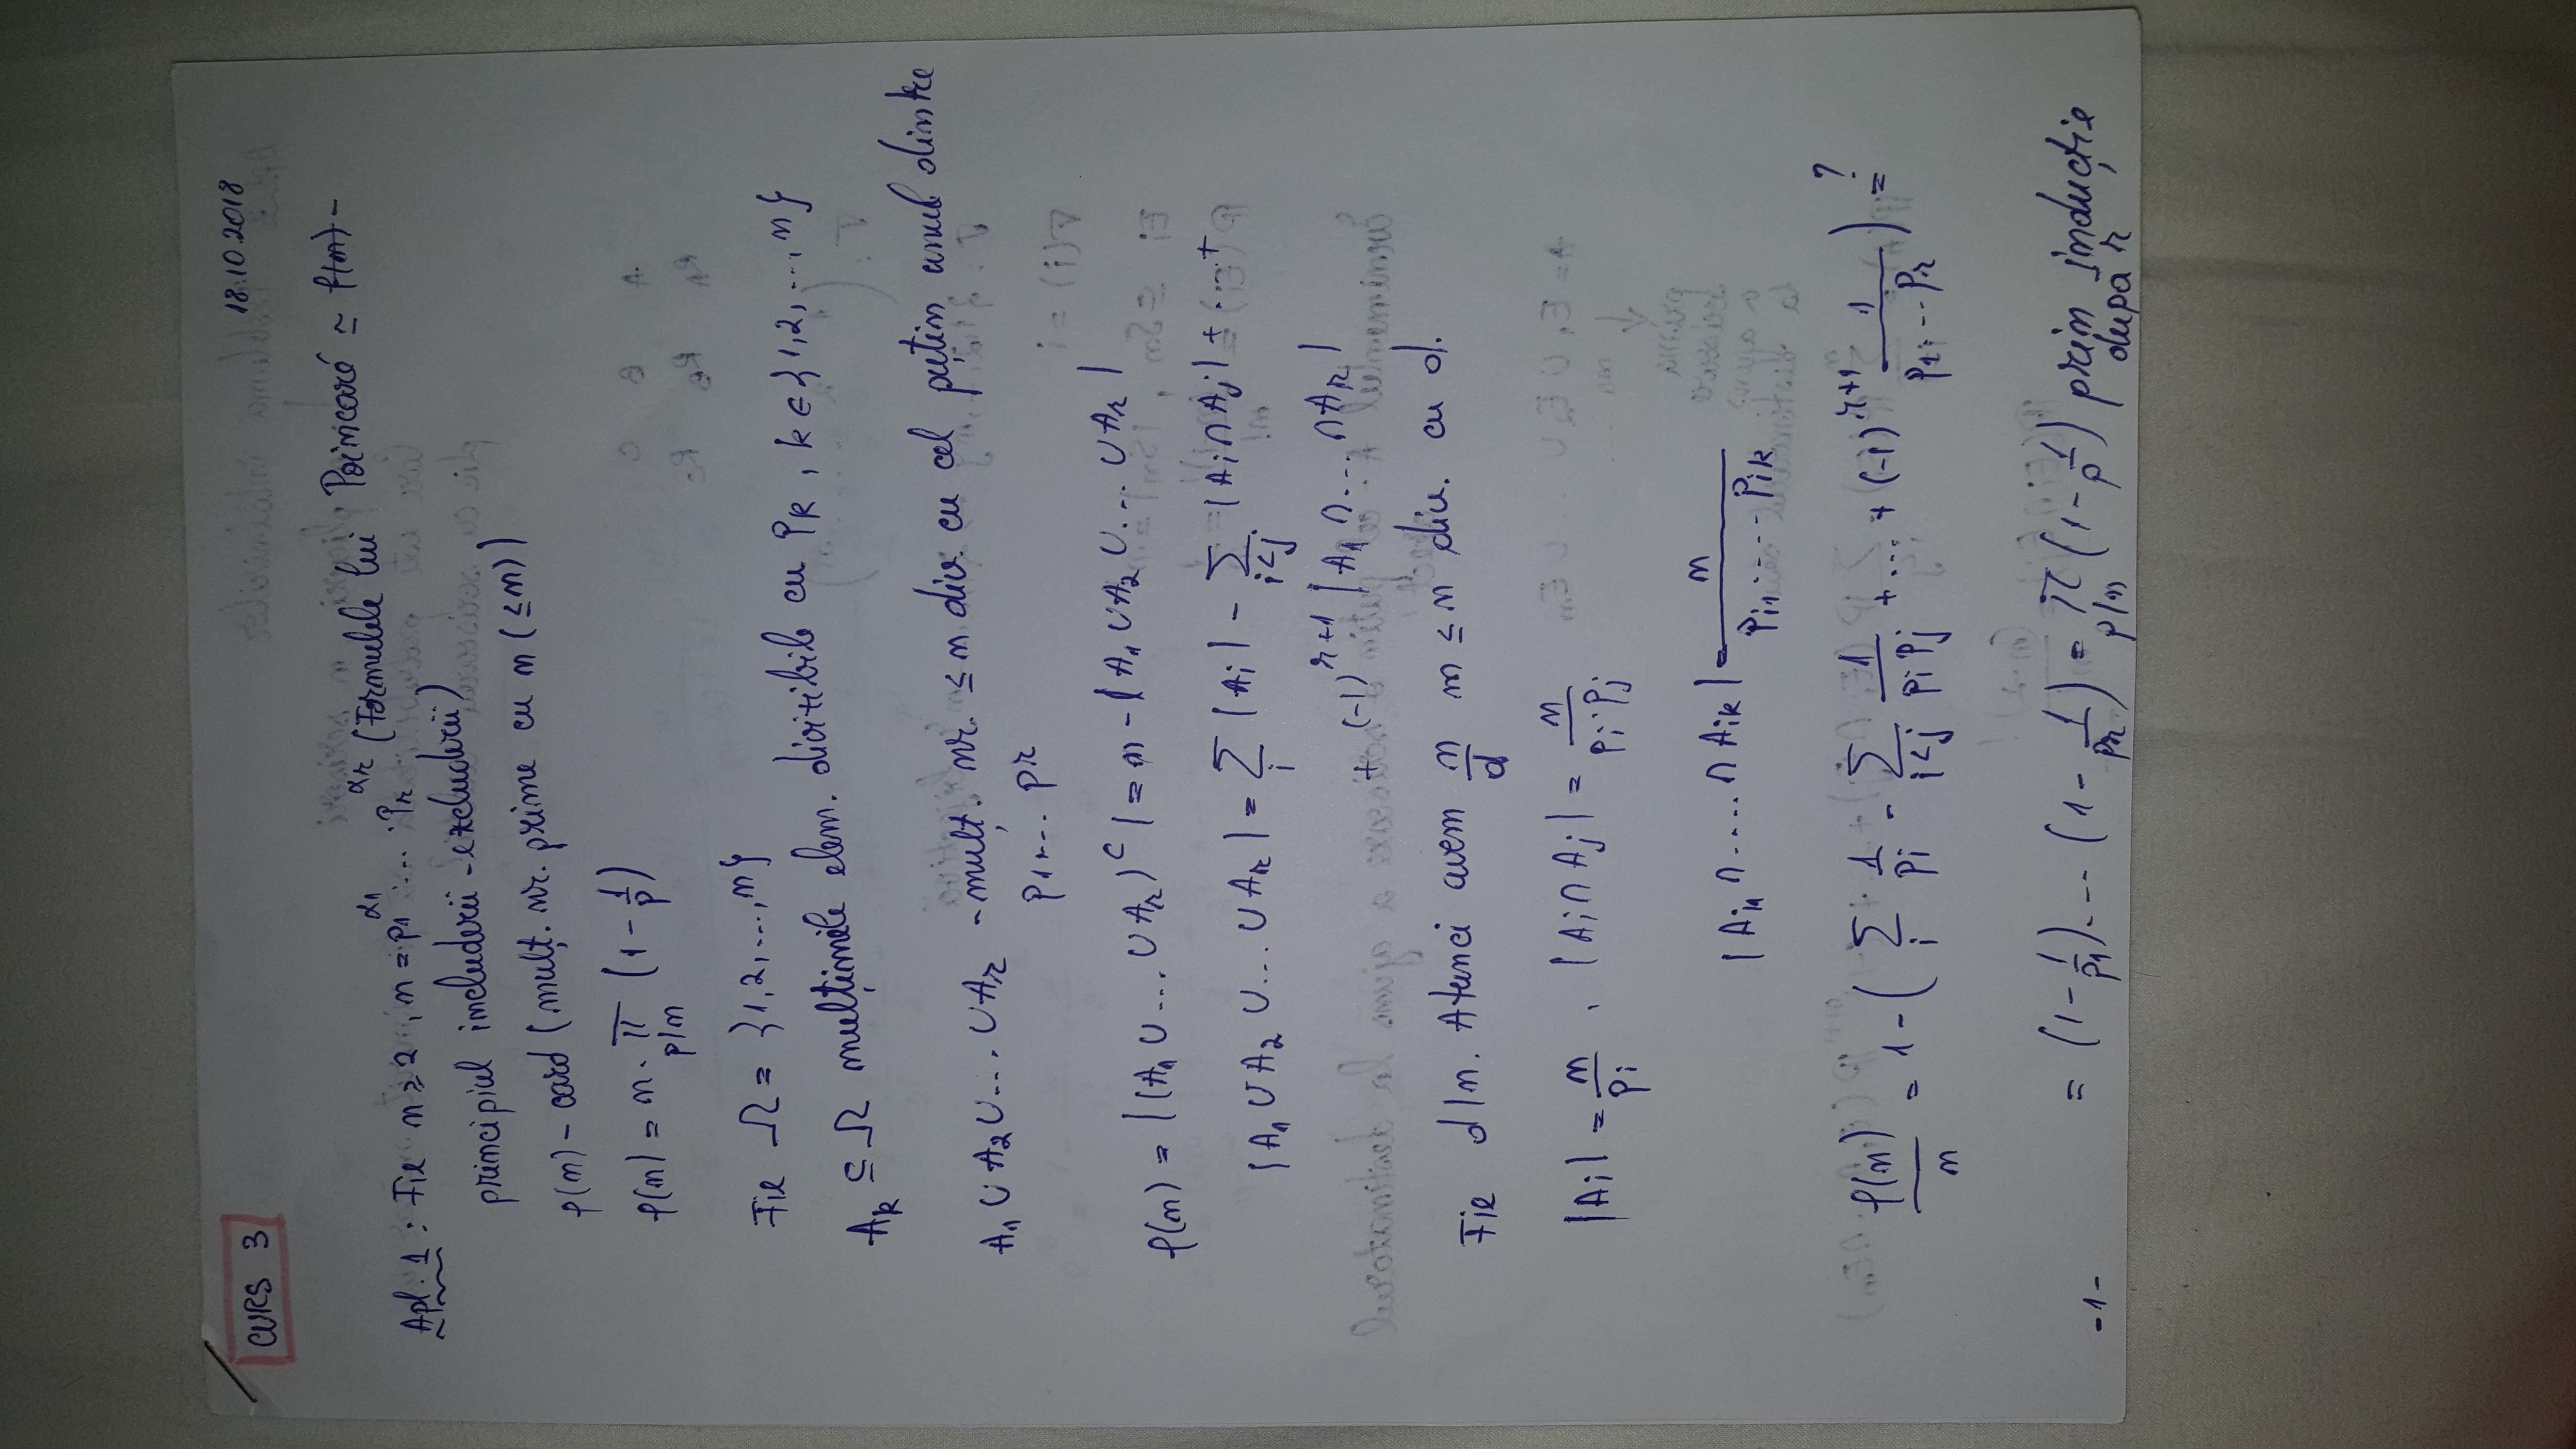 CURS 3
18.10.2018
Apl. 1 : Fie n ≥ 2 , n = p₁^α₁ · ... · pᵣ^αᵣ (Formulele lui Poincaré ≃ f(n) -
principiul includerii - excluderii)
φ(n) - card (mulț. nr. prime cu n (≤n))
φ(n) = n · ∏_{p|n} (1 - 1/p)
Fie Ω = {1,2,...,n}
A_k ⊆ Ω mulțimile elem. divizibile cu p_k , k ∈ {1,2,...,n}
A₁ ∪ A₂ ∪ ... ∪ Aᵣ - mulț. nr. ≤ n div. cu cel puțin unul dintre
p₁... pᵣ
φ(n) = |(A₁ ∪ ... ∪ Aᵣ)^c| = n - |A₁ ∪ A₂ ∪ ... ∪ Aᵣ|
|A₁ ∪ A₂ ∪ ... ∪ Aᵣ| = Σ_i |A_i| - Σ_{i<j} |A_i ∩ A_j| + ... +
+ (-1)^{r+1} |A₁ ∩ ... ∩ Aᵣ|
Fie d|n. Atunci avem n/d m ≤ n div. cu d.
|A_i| = n/p_i , |A_i ∩ A_j| = n/(p_i · p_j)
|A_{i1} ∩ ..... ∩ A_{ik}| = n/(p_{i1} · ... · p_{ik})
φ(n)/n = 1 - ( Σ_i 1/p_i - Σ_{i<j} 1/(p_i p_j) + ... + (-1)^{r+1} 1/(p₁ · ... pᵣ) ) =?
= (1 - 1/p₁) ... (1 - 1/pᵣ) = ∏_{p|n} (1 - 1/p) prin inducție
după r
-1-